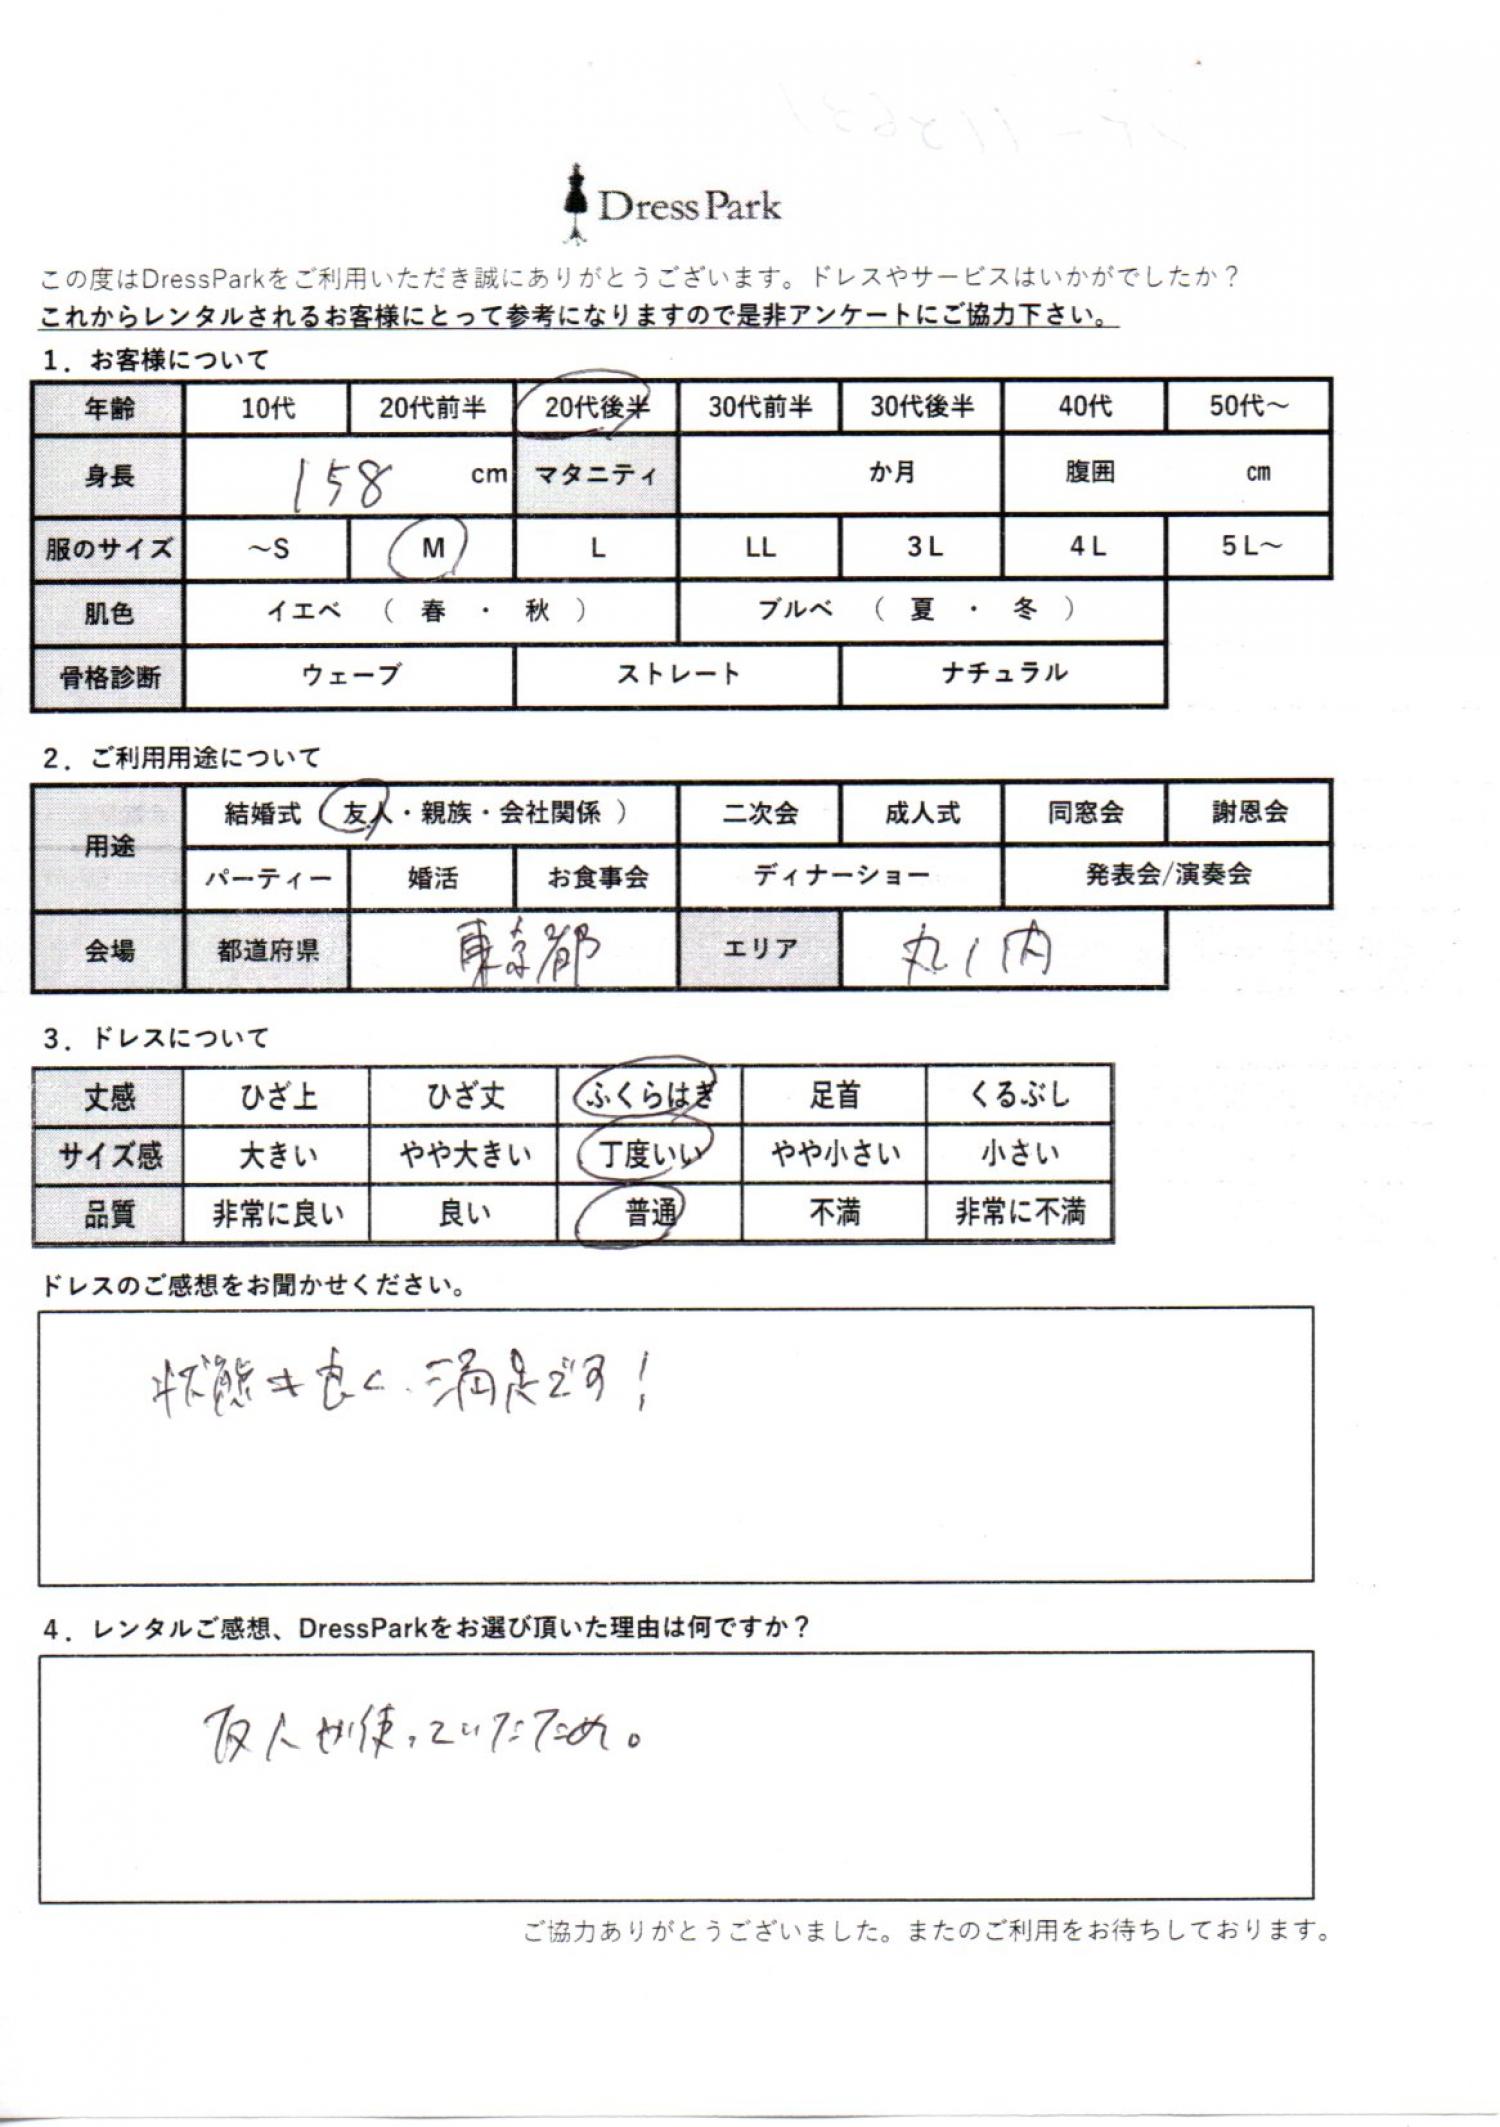 DressPark
この度はDressParkをご利用いただき誠にありがとうございます。ドレスやサービスはいかがでしたか？
これからレンタルされるお客様にとって参考になりますので是非アンケートにご協力下さい。
1．お客様について
年齢 10代 20代前半 20代後半 30代前半 30代後半 40代 50代～
身長 158 cm マタニティ か月 腹囲 ㎝
服のサイズ ～S M L LL 3L 4L 5L～
肌色 イエベ （ 春 ・ 秋 ） ブルベ （ 夏 ・ 冬 ）
骨格診断 ウェーブ ストレート ナチュラル
2．ご利用用途について
用途 結婚式（友人・親族・会社関係 ） 二次会 成人式 同窓会 謝恩会
パーティー 婚活 お食事会 ディナーショー 発表会/演奏会
会場 都道府県 東京都 エリア 丸ノ内
3．ドレスについて
丈感 ひざ上 ひざ丈 ふくらはぎ 足首 くるぶし
サイズ感 大きい やや大きい 丁度いい やや小さい 小さい
品質 非常に良い 良い 普通 不満 非常に不満
ドレスのご感想をお聞かせください。
状態も良く、満足です！
4．レンタルご感想、DressParkをお選び頂いた理由は何ですか？
友人が使っていたため。
ご協力ありがとうございました。またのご利用をお待ちしております。